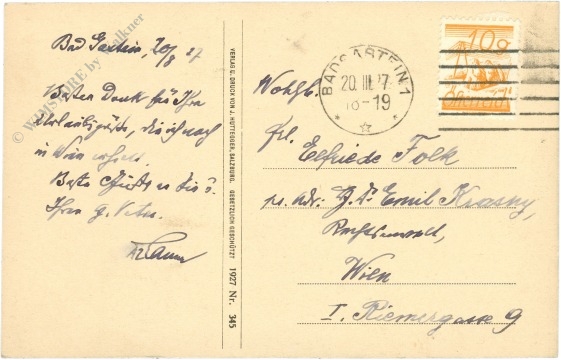 Bad Gastein, 20/8 27
Besten Dank für Ihre
Urlaubsgrüße, die ich nach
in Wien erhielt.
Beste Grüße an Sie u.
Ihren g. Vater.
VERLAG U. DRUCK VON J. HUTTEGGER, SALZBURG. GESETZLICH GESCHÜTZT 1927 Nr. 345
BADGASTEIN 1
20. III. 27
18-19
10 g
Österreich
Wohlg.
Frl.
Elfriede Folk
per adr. Dr. Emil Krasny,
Rechtsanwalt,
Wien
I. Riemergasse 9
© WEBSTORE by Falkner